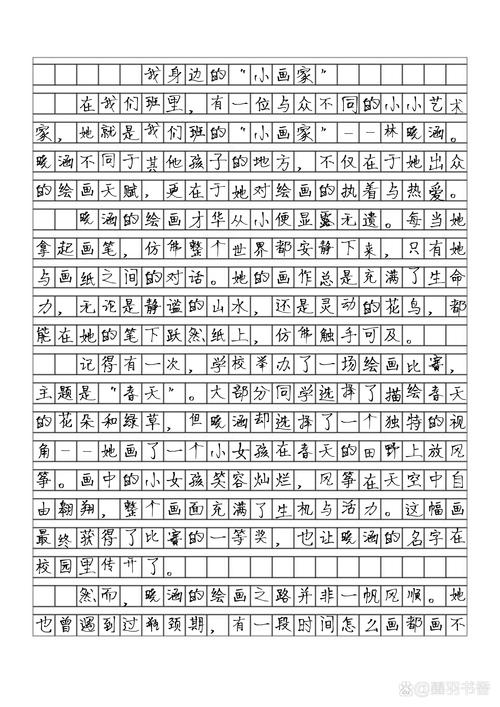 我身边的“小画家”
在我们班里，有一位与众不同的小小艺术
家，她就是我们班的“小画家”——林晚涵。
晚涵不同于其他孩子的地方，不仅在于她出众
的绘画天赋，更在于她对绘画的执着与热爱。
晚涵的绘画才华从小便显露无遗。每当她
拿起画笔，仿佛整个世界都安静下来，只有她
与画纸之间的对话。她的画作总是充满了生命
力，无论是静谧的山水，还是灵动的花鸟，都
能在她的笔下跃然纸上，仿佛触手可及。
记得有一次，学校举办了一场绘画比赛，
主题是“春天”。大部分同学选择了描绘春天
的花朵和绿草，但晚涵却选择了一个独特的视
角——她画了一个小女孩在春天的田野上放风
筝。画中的小女孩笑容灿烂，风筝在天空中自
由翱翔，整个画面充满了生机与活力。这幅画
最终获得了比赛的一等奖，也让晚涵的名字在
校园里传开了。
然而，晚涵的绘画之路并非一帆风顺。她
也曾遇到过瓶颈期，有一段时间怎么画都画不
@晶羽书香